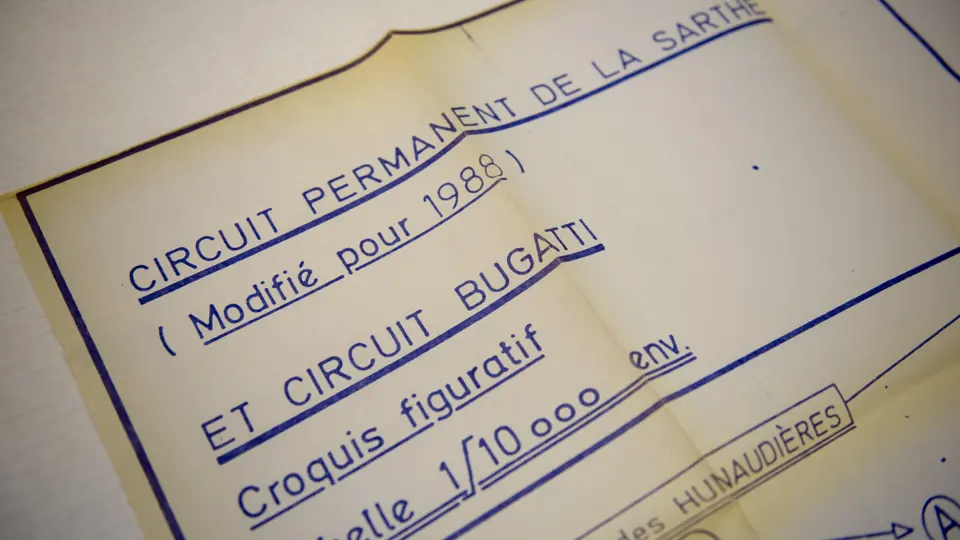 CIRCUIT PERMANENT DE LA SARTHE
(Modifié pour 1988)
ET CIRCUIT BUGATTI
Croquis figuratif
helle 1/10000 env.
des HUNAUDIÈRES
A